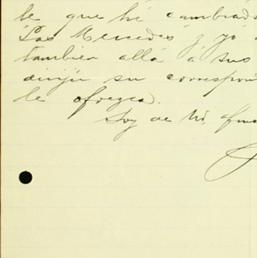 le que hé cambiado
"Las Mercedes" y yó
tambien allá á sus
dirijir su correspon
le ofrezca.
Soy de Ud. afmo